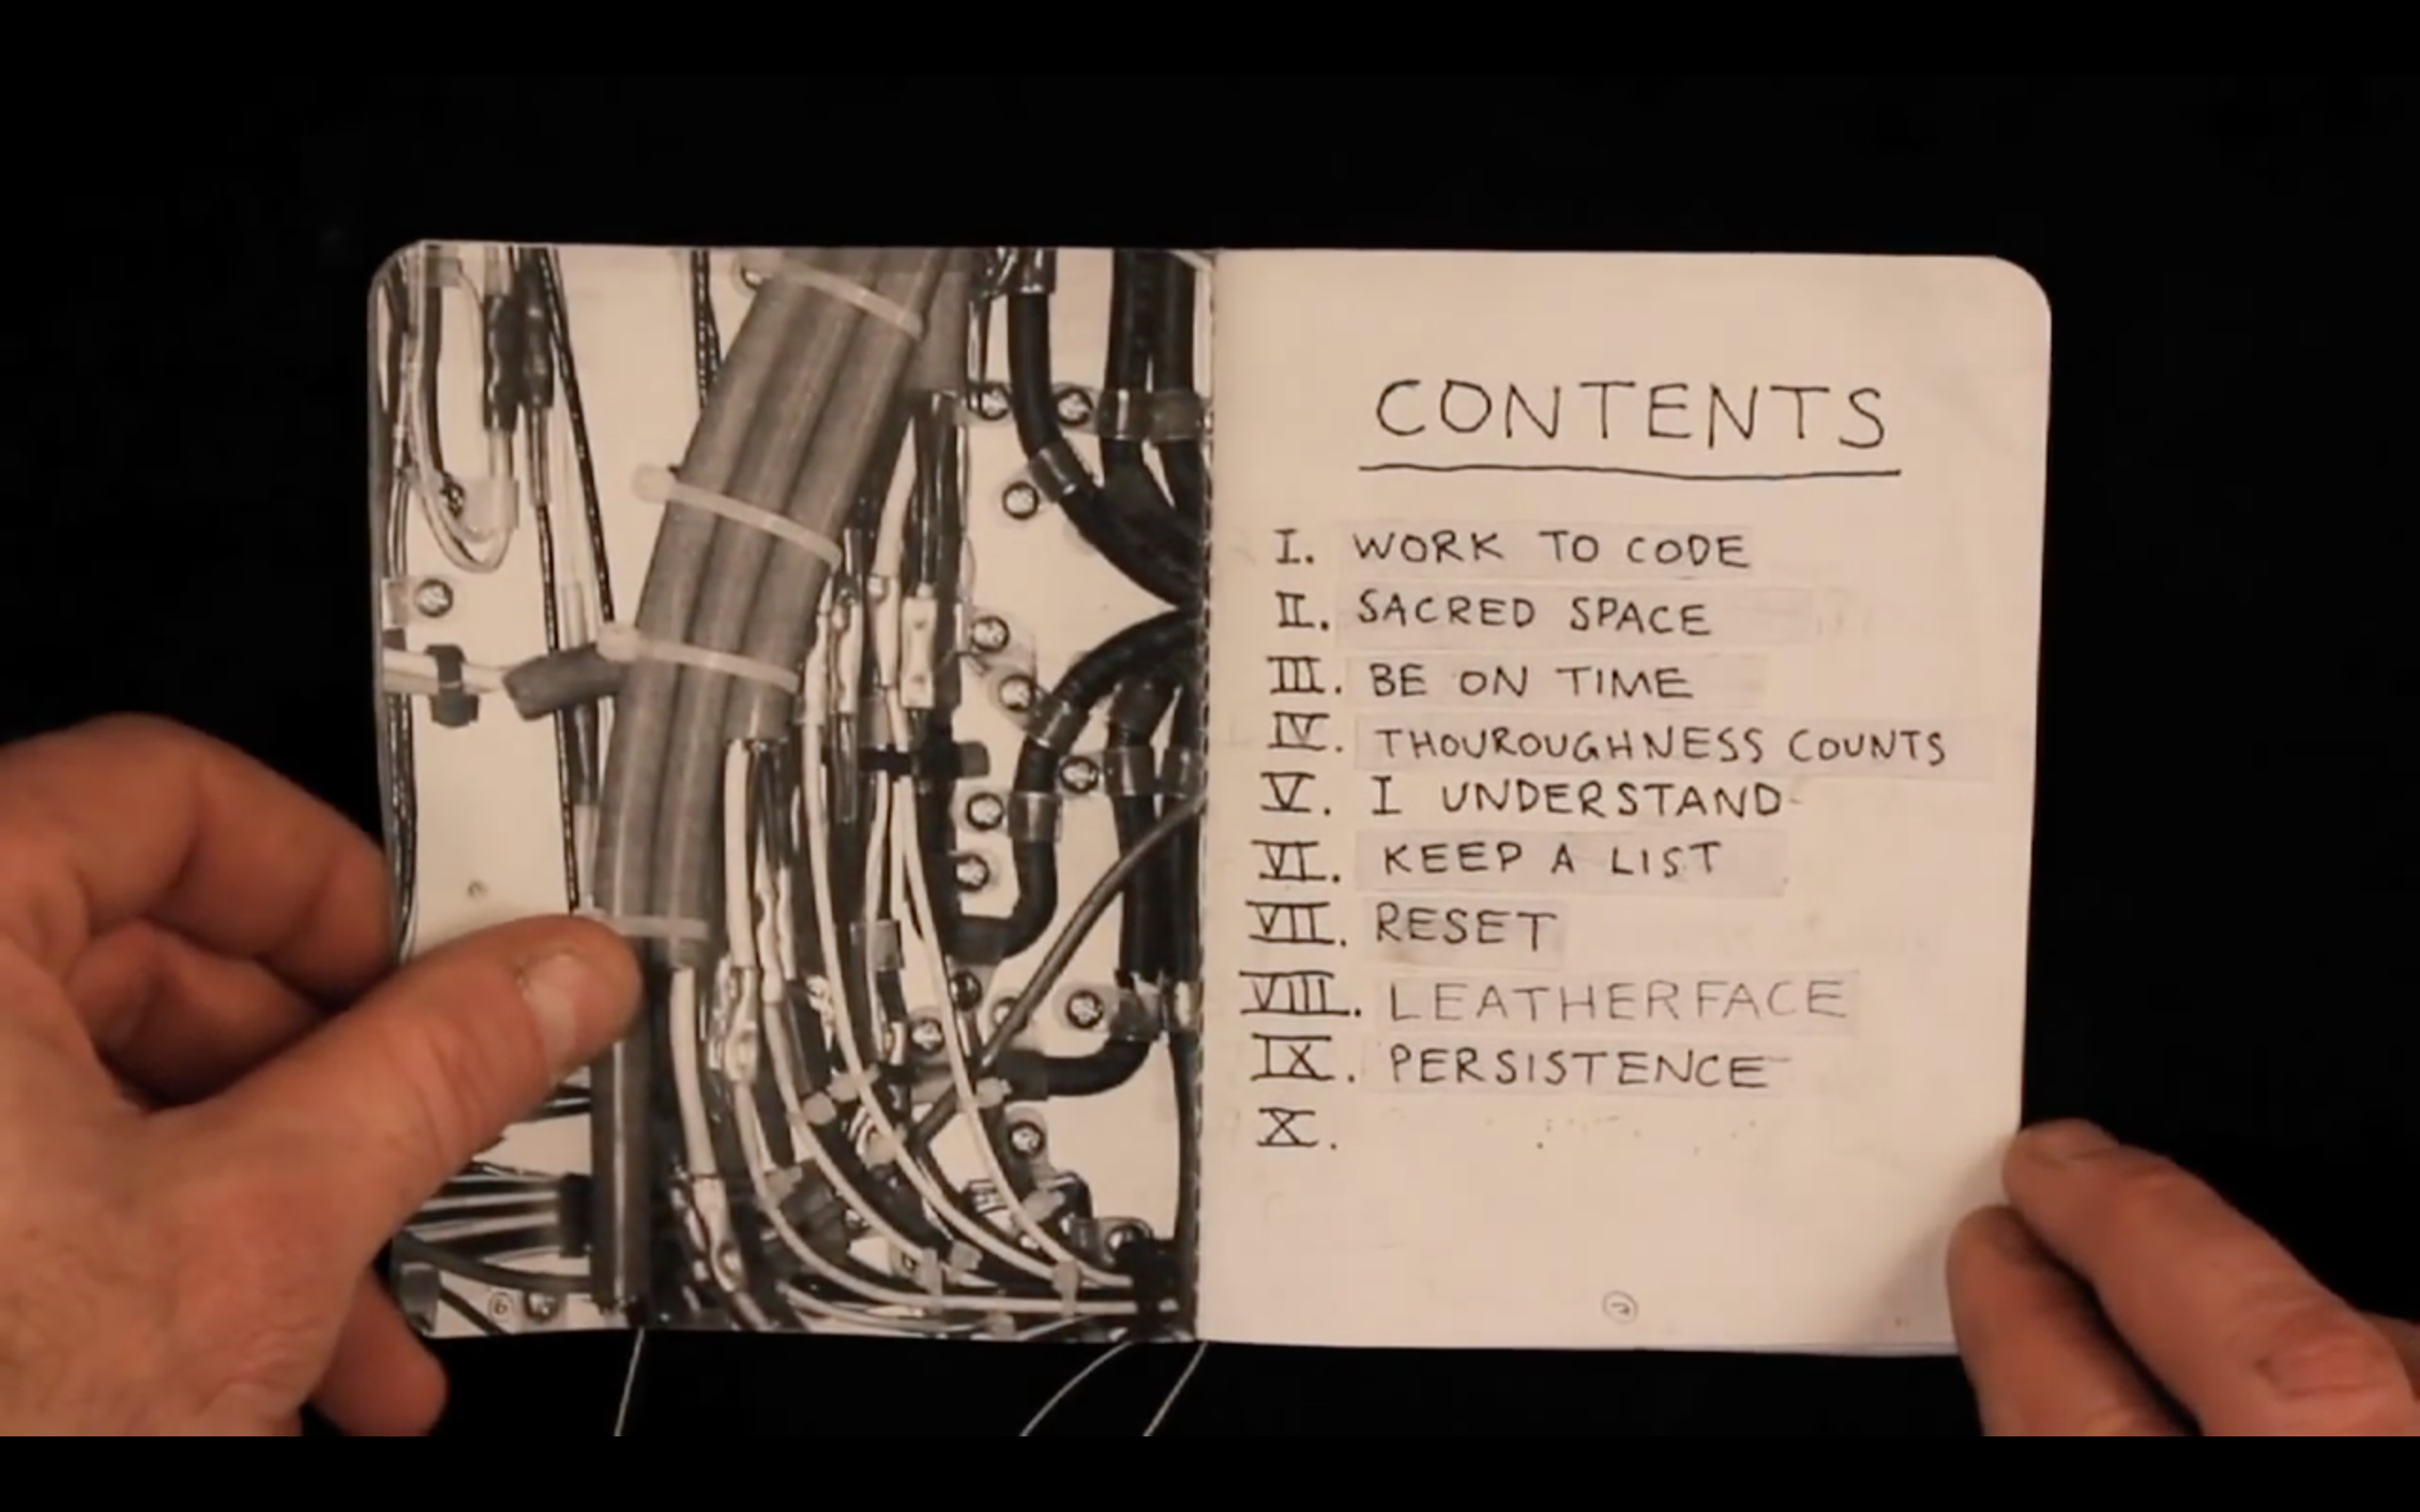 CONTENTS
I. WORK TO CODE
II. SACRED SPACE
III. BE ON TIME
IV. THOUROUGHNESS COUNTS
V. I UNDERSTAND
VI. KEEP A LIST
VII. RESET
VIII. LEATHERFACE
IX. PERSISTENCE
X.
6 7